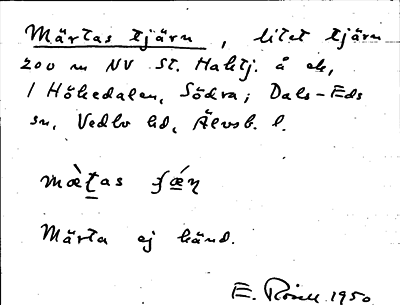 Märtas tjärn, litet tjärn
200 m NV St. Haktj. å ek,
/ Hökedalen, Södra; Dals-Eds
sn, Vedbo hd, Älvsb. l.
mæ̀t̠as ʃǽn
Märta ej känd.
E. 1950